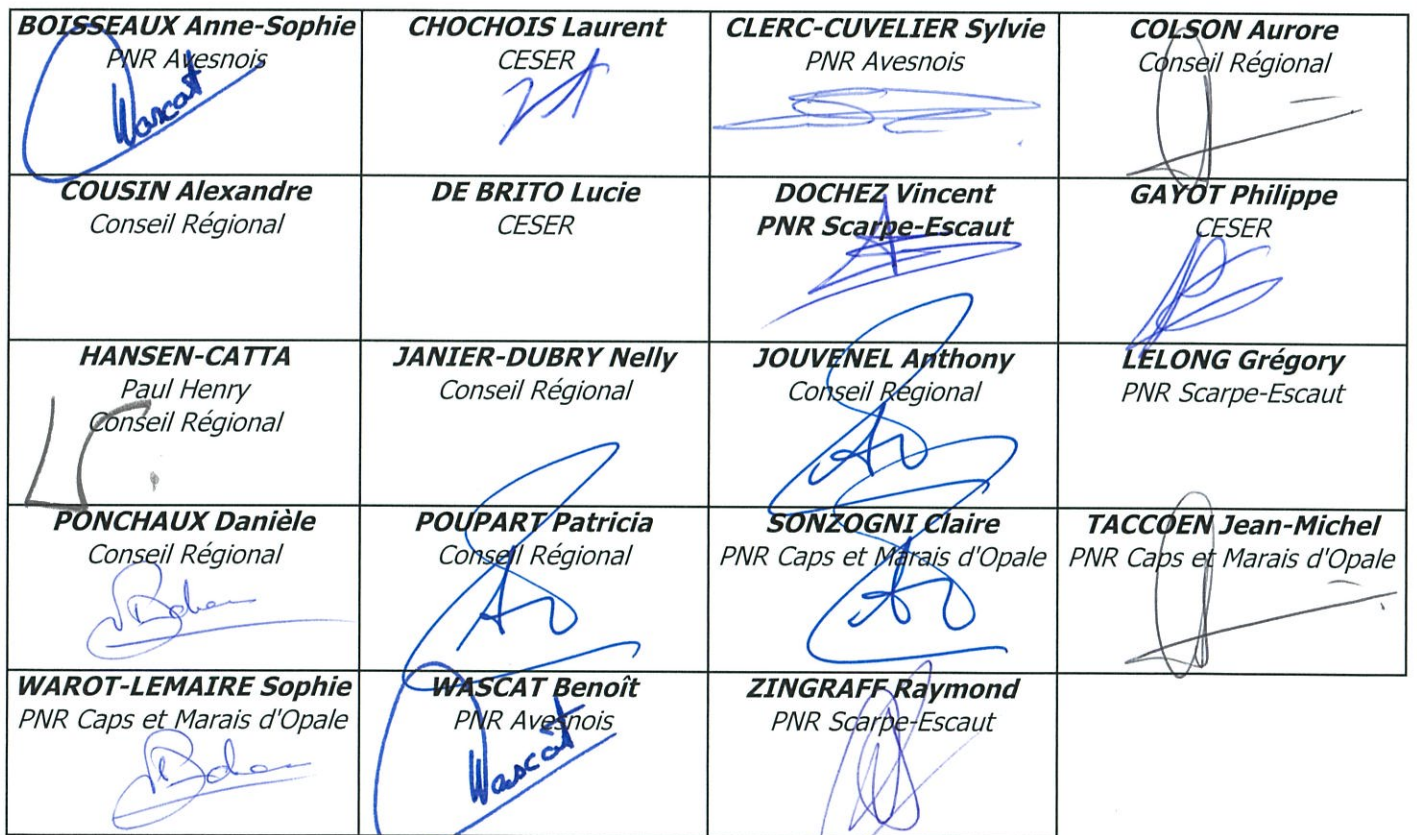 BOISSEAUX Anne-Sophie
PNR Avesnois
Wascat
CHOCHOIS Laurent
CESER
CLERC-CUVELIER Sylvie
PNR Avesnois
COLSON Aurore
Conseil Régional
COUSIN Alexandre
Conseil Régional
DE BRITO Lucie
CESER
DOCHEZ Vincent
PNR Scarpe-Escaut
GAYOT Philippe
CESER
HANSEN-CATTA
Paul Henry
Conseil Régional
JANIER-DUBRY Nelly
Conseil Régional
JOUVENEL Anthony
Conseil Régional
LELONG Grégory
PNR Scarpe-Escaut
PONCHAUX Danièle
Conseil Régional
POUPART Patricia
Conseil Régional
SONZOGNI Claire
PNR Caps et Marais d'Opale
TACCOEN Jean-Michel
PNR Caps et Marais d'Opale
WAROT-LEMAIRE Sophie
PNR Caps et Marais d'Opale
WASCAT Benoît
PNR Avesnois
Wascat
ZINGRAFF Raymond
PNR Scarpe-Escaut